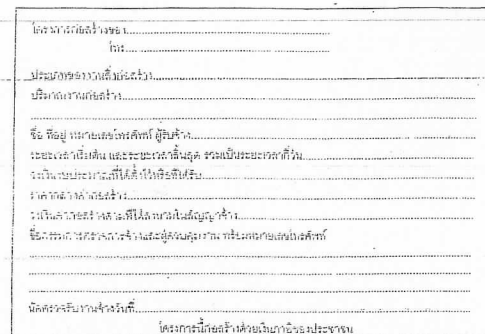 โครงการก่อสร้างของ
โทร
ประเภทของงานสิ่งก่อสร้าง
ปริมาณงานก่อสร้าง
ชื่อ ที่อยู่ หมายเลขโทรศัพท์ ผู้รับจ้าง
ระยะเวลาเริ่มต้น และระยะเวลาสิ้นสุด รวมเป็นระยะเวลากี่วัน
วงเงินงบประมาณที่ได้ตั้งไว้หรือที่ได้รับ
ราคากลางค่าก่อสร้าง
วงเงินค่าก่อสร้างตามที่ได้ลงนามในสัญญาจ้าง
ชื่อกรรมการตรวจการจ้างและผู้ควบคุมงาน พร้อมหมายเลขโทรศัพท์
นัดตรวจรับงานจ้างวันที่
โครงการนี้ก่อสร้างด้วยเงินภาษีของประชาชน